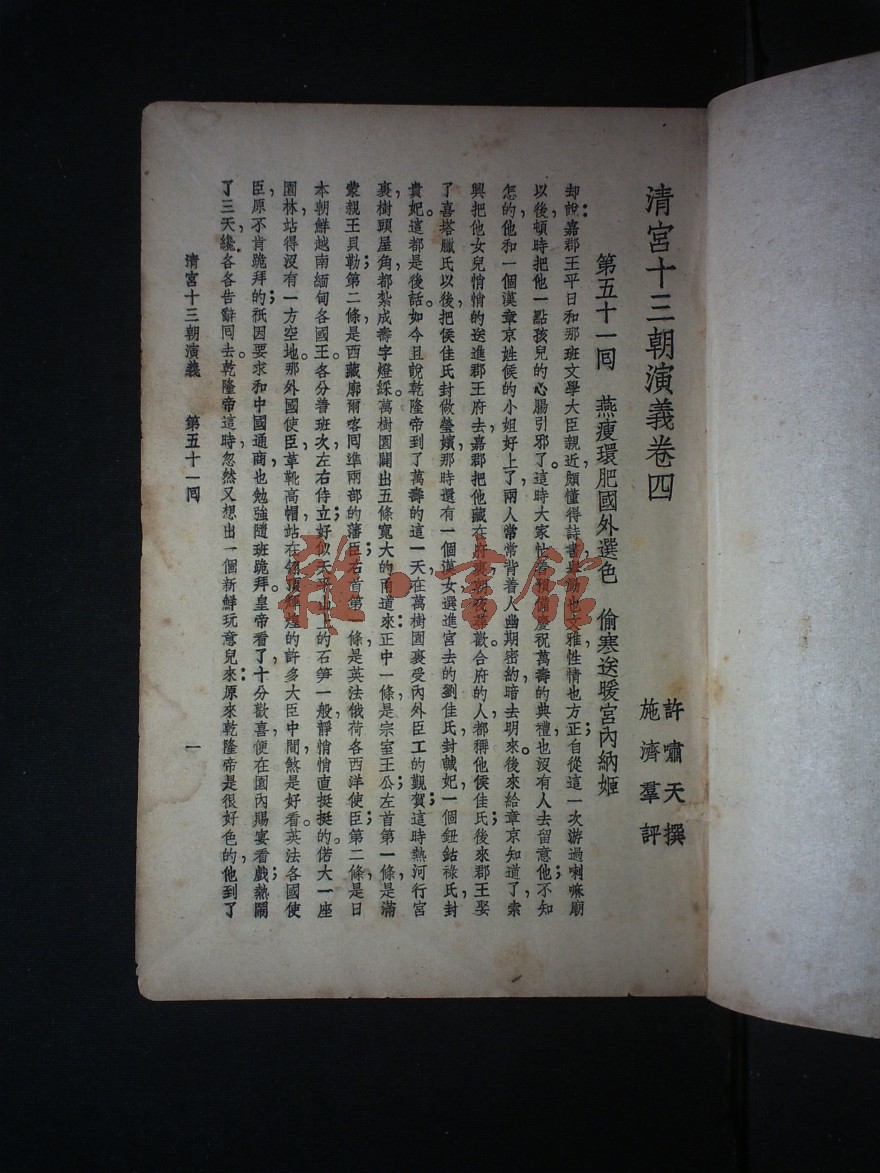 清宮十三朝演義卷四
許嘯天撰
施濟羣評
第五十一囘　燕瘦環肥國外選色　偷寒送暖宮內納姬
却說：嘉郡王平日和那班文學大臣親近，頗懂得詩書，舉動也文雅，性情也方正；自從這一次游過喇嘛廟
以後，頓時把他一點孩兒的心腸引邪了。這時大家忙着預備慶祝萬壽的典禮，也沒有人去留意他；不知
怎的，他和一個漢章京姓侯的小姐好上了，兩人常常背着人幽期密約，暗去明來。後來給章京知道了，索
興把他女兒悄悄的送進郡王府去。嘉郡把他藏在府裏，朝夜尋歡。合府的人都稱他侯佳氏；後來郡王娶
了喜塔臘氏以後，把侯佳氏封做瑩嬪，那時還有一個漢女選進宮去的劉佳氏封諴妃，一個鈕鈷祿氏封
貴妃。這都是後話。如今且說乾隆帝到了萬壽的這一天，在萬樹園裏受內外臣工的覲賀；這時熱河行宮
裏，樹頭屋角，都紮成壽字燈綵。萬樹園闢出五條寬大的甬道來：正中一條，是宗室王公；左首第一條，是滿
蒙親王貝勒；第二條，是西藏廓爾喀囘準兩部的藩臣；右首第一條，是英法俄荷各西洋使臣；第二條，是日
本朝鮮越南緬甸各國王。各分着班次，左右侍立，好似天平山上的石笋一般，靜悄悄直挺挺的。偌大一座
園林，站得沒有一方空地。那外國使臣，革靴高帽，站在翎頂輝煌的許多大臣中間，煞是好看。英法各國使
臣，原不肯跪拜的；祇因要求和中國通商，也勉強隨班跪拜。皇帝看了，十分歡喜，便在園內賜宴看戲；熱鬧
了三天，纔各各告辭囘去。乾隆帝這時忽然又想出一個新鮮玩意兒來：原來乾隆帝是很好色的，他到了
清宮十三朝演義　第五十一囘　一
雅·書館